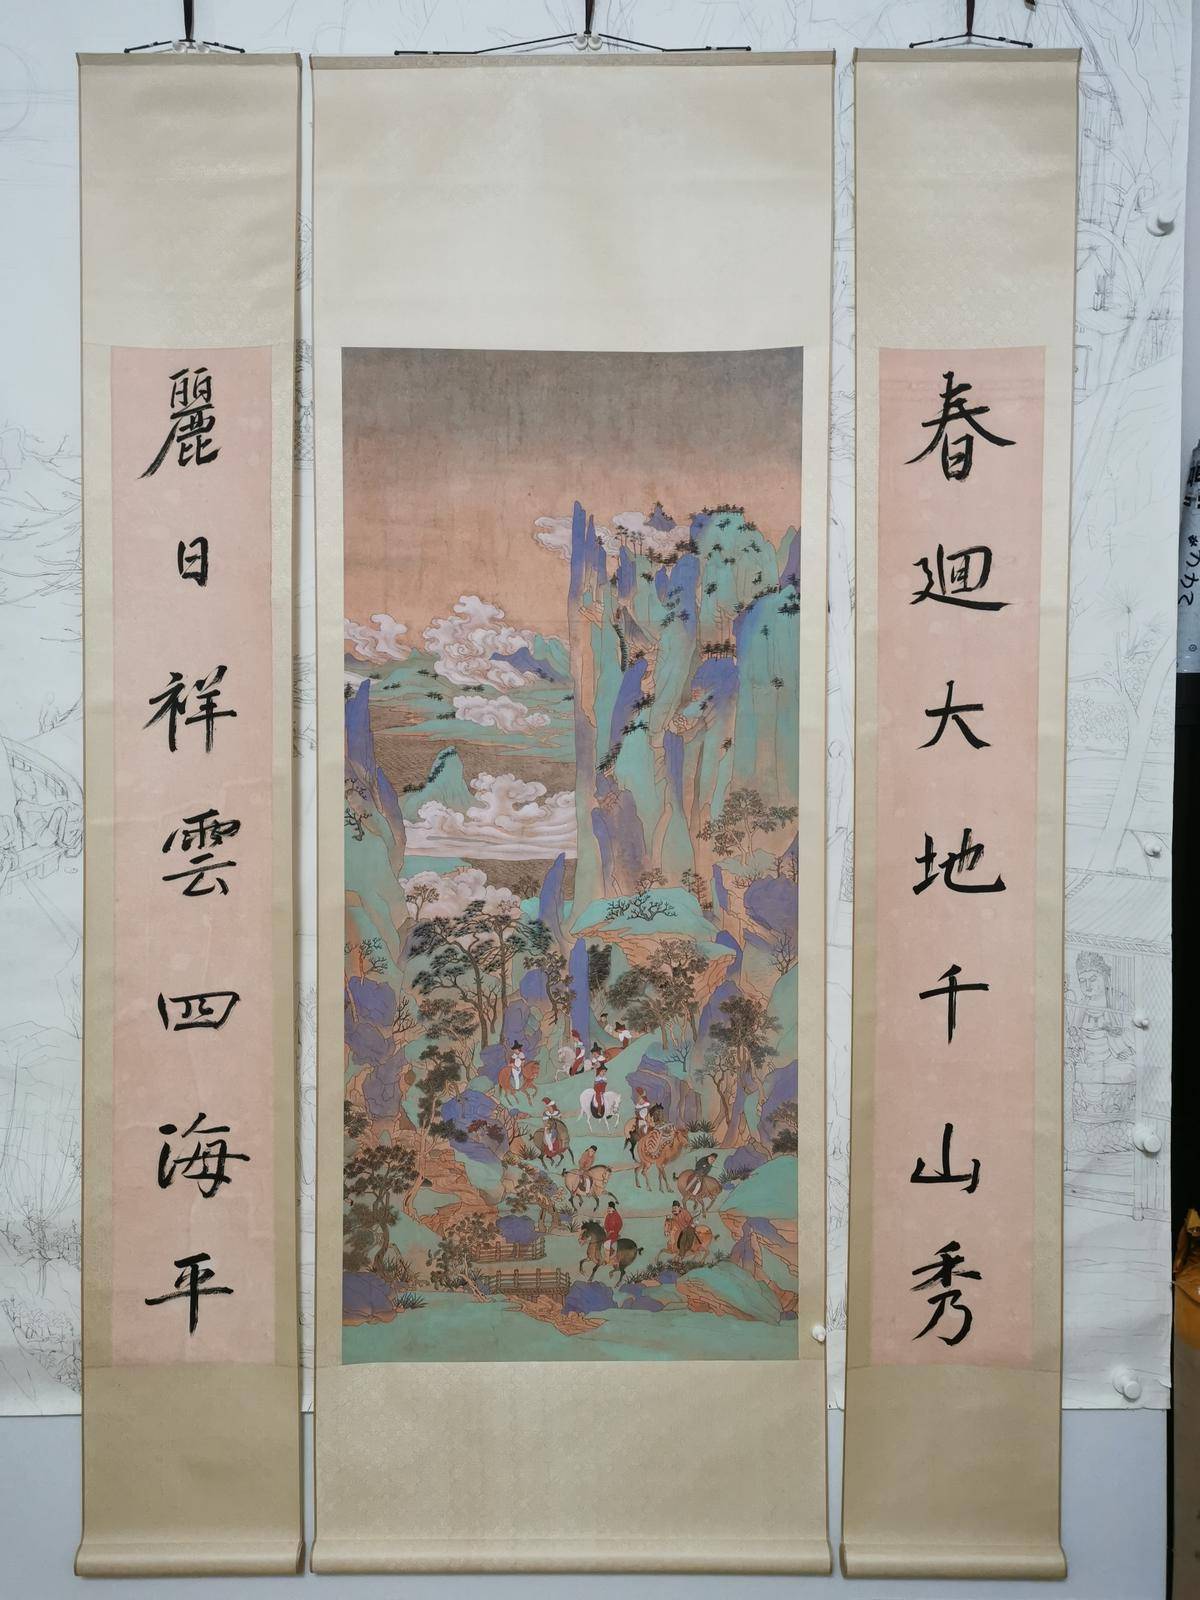 春廻大地千山秀
麗日祥雲四海平